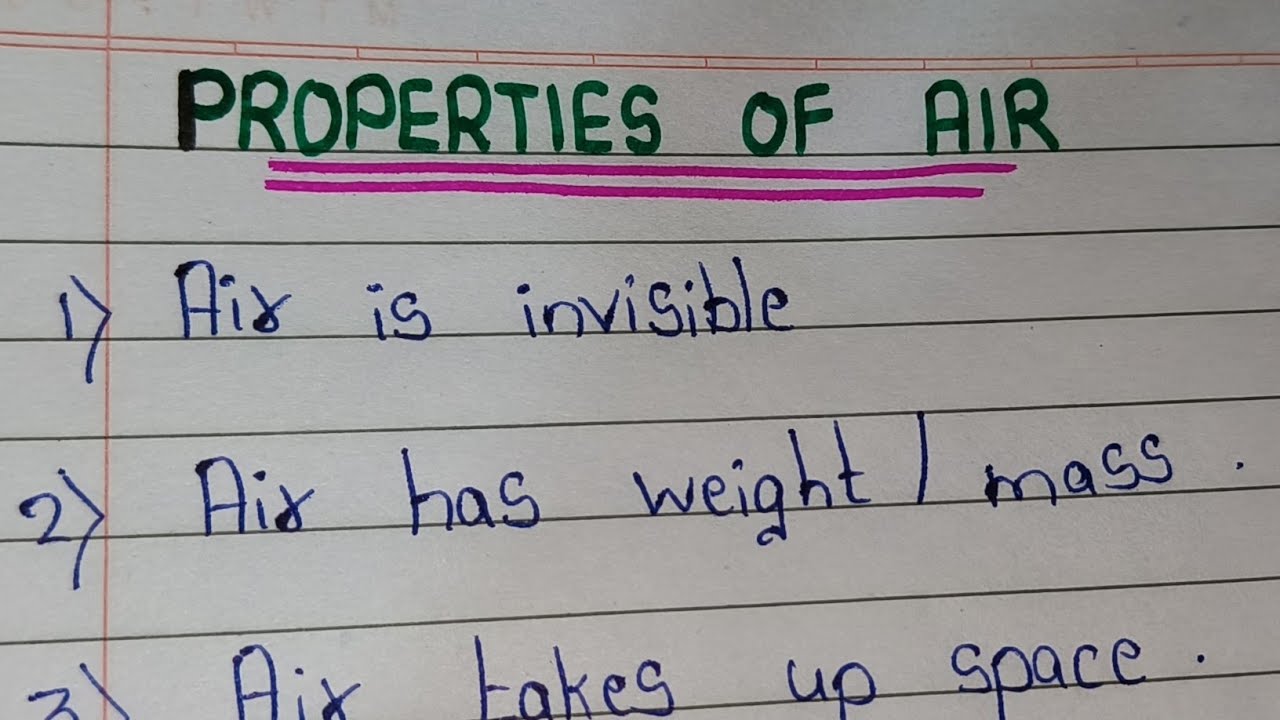 PROPERTIES OF AIR
1) Air is invisible
2) Air has weight / mass .
3) Air takes up space .